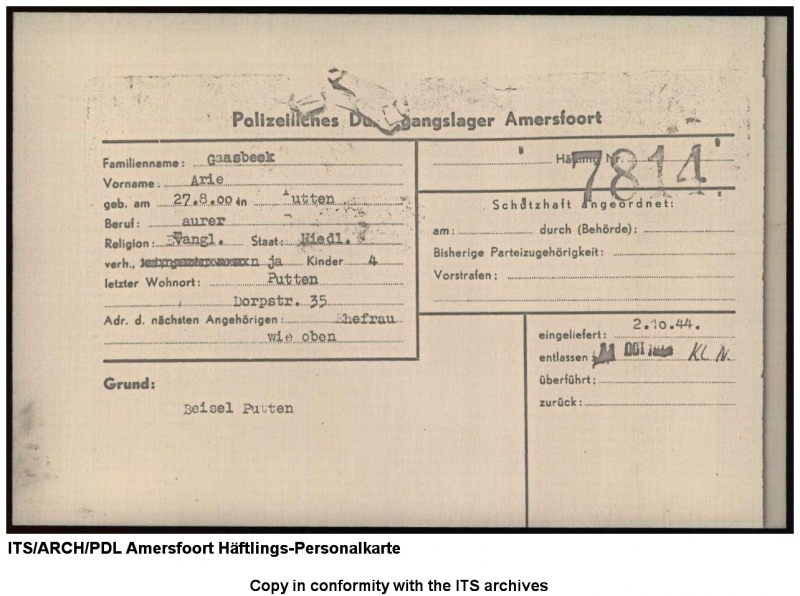 Polizeiliches Durchgangslager Amersfoort
Familienname: Gaasbeek
Vorname: Arie
geb. am 27.8.00 in utten
Beruf: aurer
Religion: Evangl. Staat: Niedl.
verh., ja Kinder 4
letzter Wohnort: Putten
Dorpstr. 35
Adr. d. nächsten Angehörigen: Ehefrau
wie oben
Grund:
Beisel Putten
Häftling Nr. 7814
Schutzhaft angeordnet:
am: durch (Behörde):
Bisherige Parteizugehörigkeit:
Vorstrafen:
eingeliefert: 2.10.44.
entlassen: KL N.
überführt:
zurück:
ITS/ARCH/PDL Amersfoort Häftlings-Personalkarte
Copy in conformity with the ITS archives